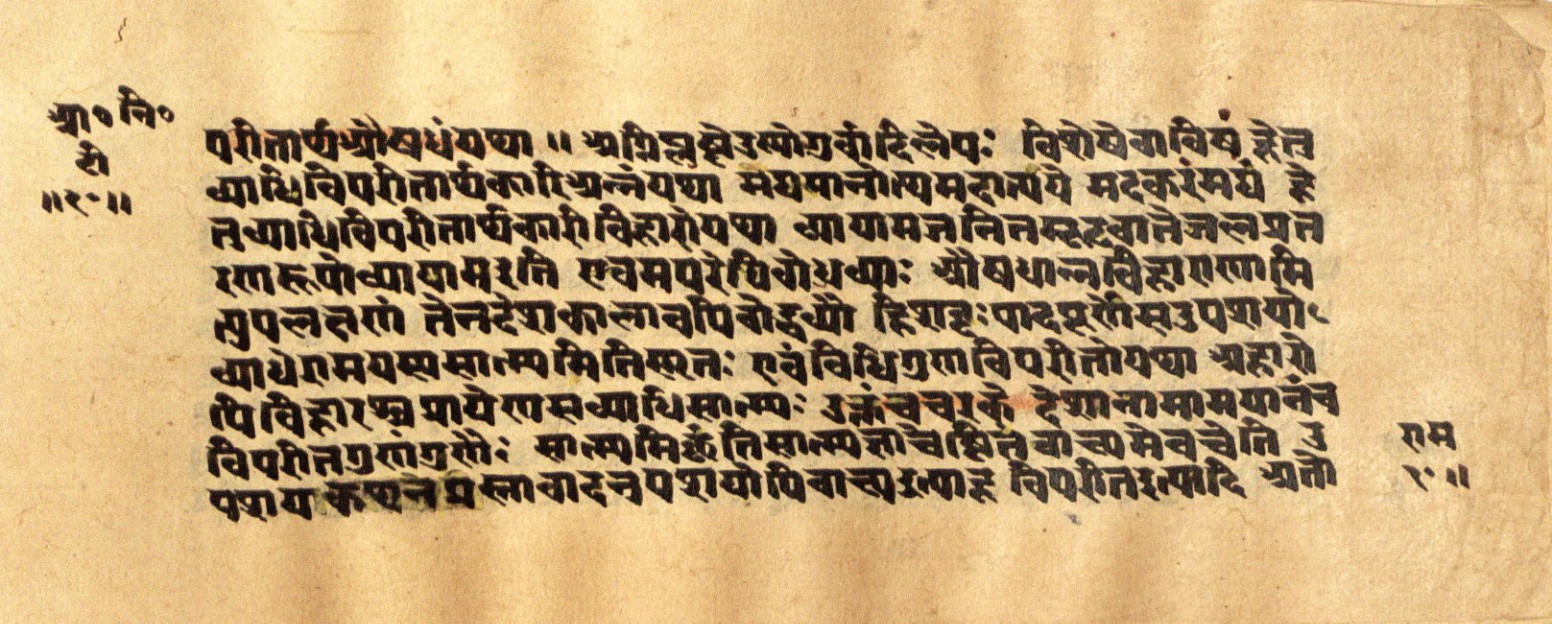 मा॰ नि॰
टी
॥१०॥
परीतार्थऔषधंयथा ॥ अग्निप्लुष्टेउष्णोगुर्वादिलेपः विशेषेवाविषं हेतु
व्याधिविपरीतार्थकारिअन्नंयथा मद्यपानोत्थमदात्यये मदकरंमद्यं हे
तुव्याधिविपरीतार्थकारीविहारोयथा व्यायामजनितमूढवातेजलप्रत
रणरूपोव्यायामइति एवमपरेपिबोधव्याः औषधान्नविहाराणामि
त्युपलक्षणं तेनदेशकालावपिबोद्धव्यौ हिशब्दःपादपूरणेसउपशयो
व्याधेरामयस्यसात्म्यमितिस्मृतः एवंविधिगुणविपरीतोयथा अहारो
पिविहारश्चप्रायेणसव्याधिसात्म्यः उक्तंचचरके देशानामामयानंच
विपरीतगुणंगुणैः सात्म्यमिछंतिसात्म्यज्ञाचेष्टितंवाच्यमेवचेति उ
पशयकथनप्रस्तावादनुपशयोपिवाच्यइत्याह विपरीतइत्यादि अतो
राम
१०॥